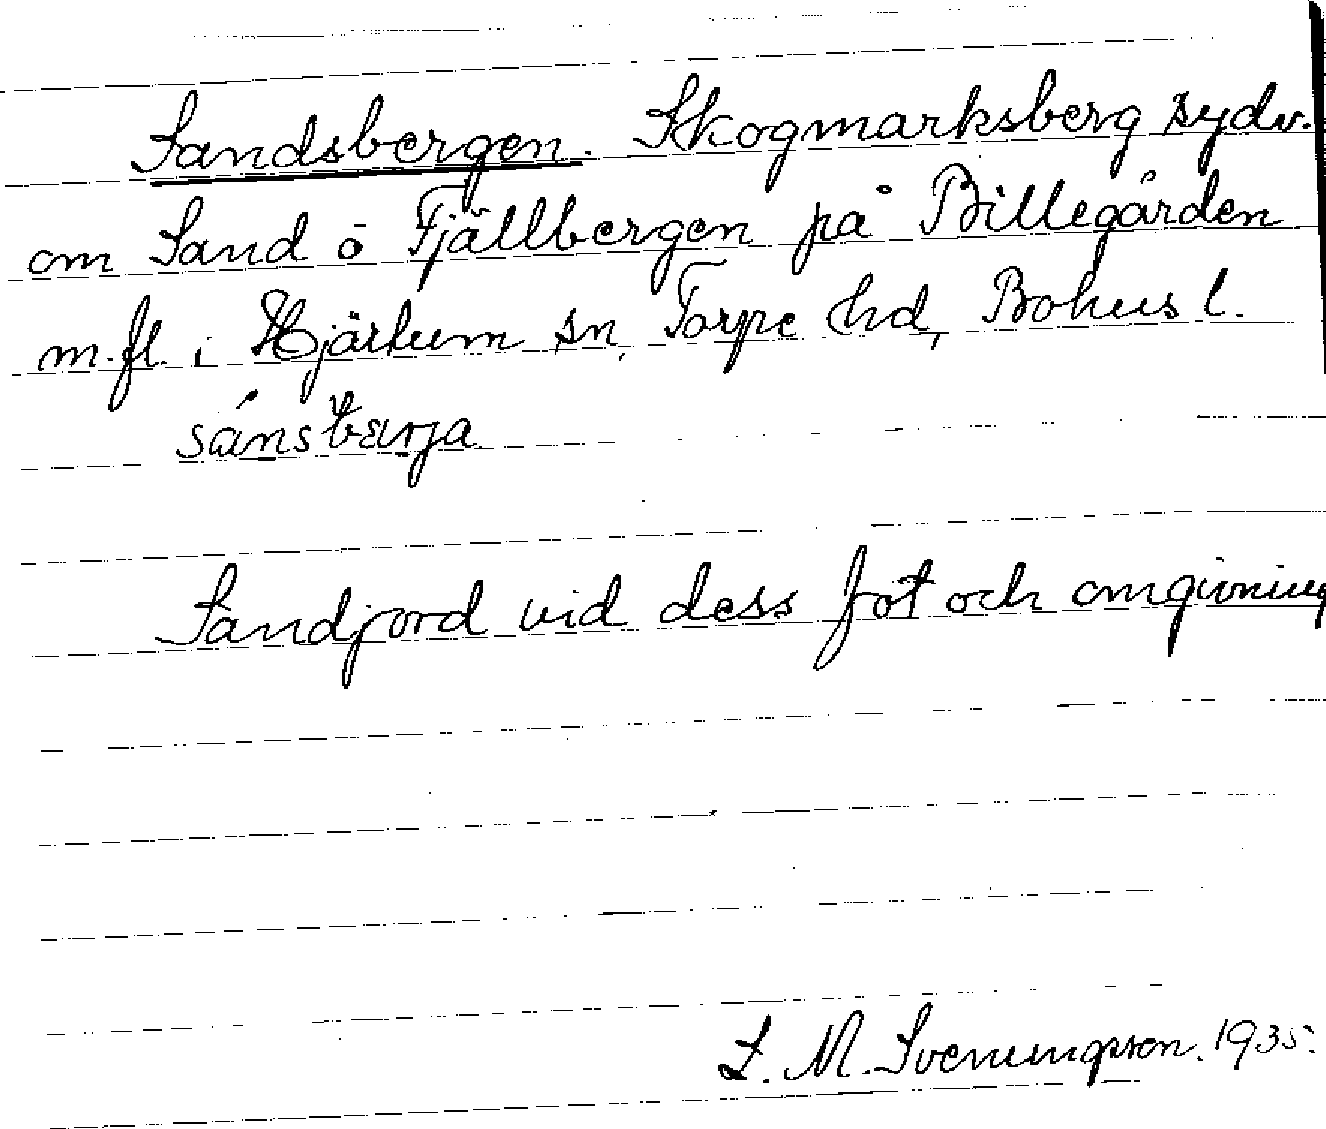 Sandsbergen. Skogmarksberg sydv.
om Sand o Fjällbergen på Billegården
m. fl. i Hjärtum sn, Torpe hd, Bohus l.
sánsbærja
Sandjord vid dess fot och omgivning
L. M. Svenungsson. 1935.